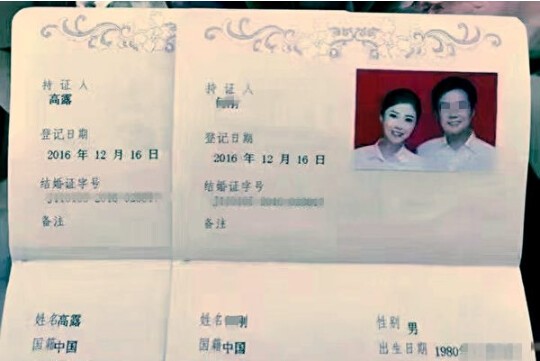 持证人
高露
登记日期
2016 年 12 月 16 日
结婚证字号
备注
姓名 高露
国籍 中国
持证人
登记日期
2016 年 12 月 16 日
结婚证字号
备注
姓名
国籍 中国
性别 男
出生日期 1980